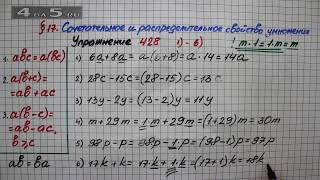 4.5.ru
§17. Сочетательное и распределительное свойство умножения
Упражнение 428 1)-6) ! m·1=1·m=m
1. abc=a(bc)
2. a(b+c)=
=ab+ac
3. a(b-c)=
=ab-ac,
b>c
ab=ba
1) 6a+8a=a(6+8)=a·14=14a
2) 28c-15c=(28-15)c=13c
3) 13y-2y=(13-2)y=11y
4) m+29m=1·m+29m=(1+29)m=30m
5) 98p-p=98p-1·p=(98-1)p=97p
6) 17k+k=17·k+1·k=(17+1)k=18k